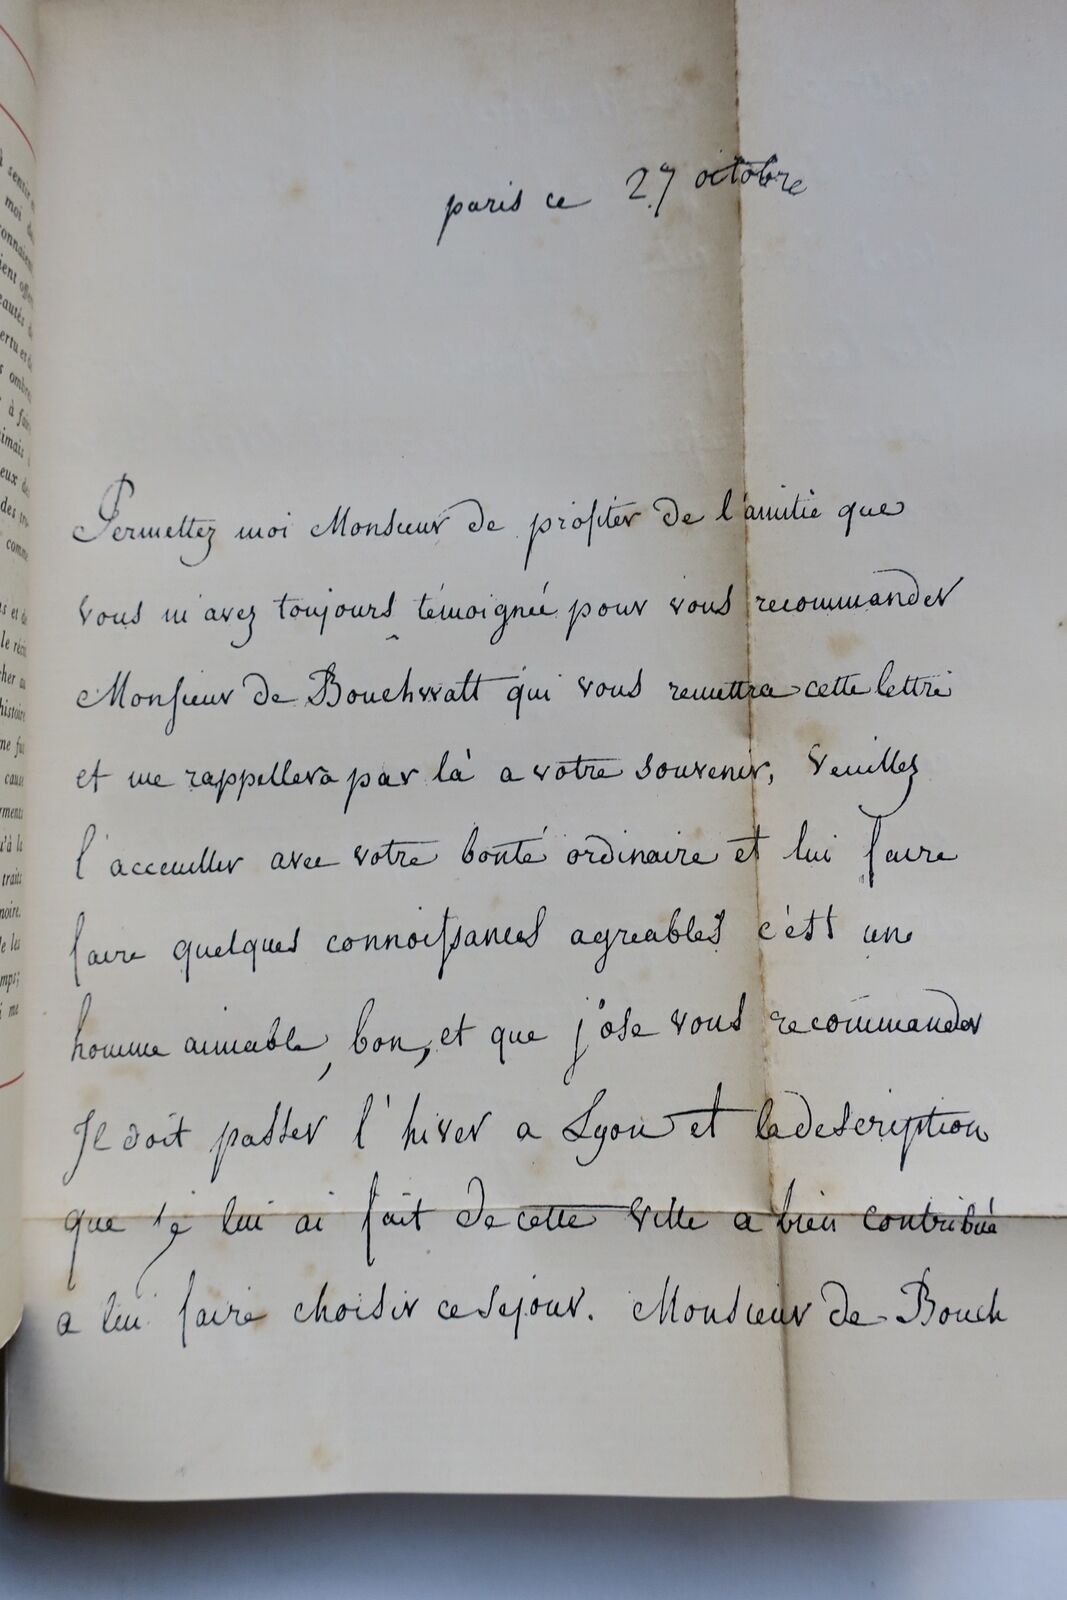 paris ce 27 octobre
Permettez moi Monsieur de profiter de l'amitié que
vous m'avez toujours témoignée pour vous recommander
Monsieur de Bouchwatt qui vous remettra cette lettre
et me rappellera par là a votre souvenir, veuillez
l'acceuiller avec votre bonté ordinaire et lui faire
faire quelques connoissances agreables c'est un
homme aimable, bon, et que j'ose vous recommander
Il doit passer l'hiver a Lyon et la description
que je lui ai fait de cette ville a bien contribué
a lui faire choisir ce sejour. Monsieur de Bouch